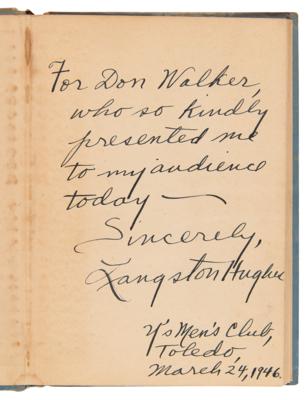 For Don Walker,
who so kindly
presented me
to my audience
today —
Sincerely,
Langston Hughes
Y's Men's Club,
Toledo,
March 24, 1946.